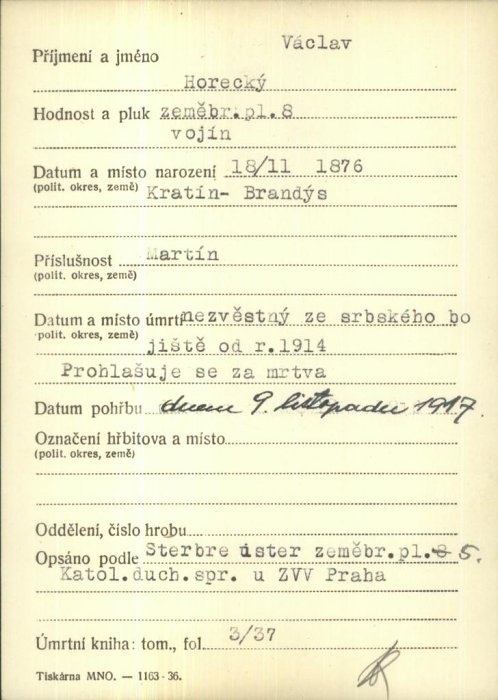 Václav
Příjmení a jméno
Horecký
Hodnost a pluk zeměbr.pl.8
vojín
Datum a místo narození 18/11 1876
(polit. okres, země) Kratín- Brandýs
Příslušnost Martín
(polit. okres, země)
Datum a místo úmrtí nezvěstný ze srbského bo
(polit. okres, země) jiště od r.1914
Prohlašuje se za mrtva
Datum pohřbu dnem 9. listopadu 1917.
Označení hřbitova a místo
(polit. okres, země)
Oddělení, číslo hrobu
Opsáno podle Sterbre ister zeměbr.pl.8 5.
Katol.duch.spr. u ZVV Praha
Úmrtní kniha: tom., fol. 3/37
Tiskárna MNO. — 1163-36.